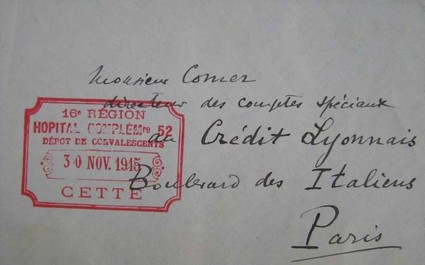 Monsieur Comer
directeur des comptes spéciaux
au Crédit Lyonnais
Boulevard des Italiens
Paris
16e RÉGION
HOPITAL COMPLÉMre 52
DÉPOT DE CONVALESCENTS
30 NOV. 1915
CETTE